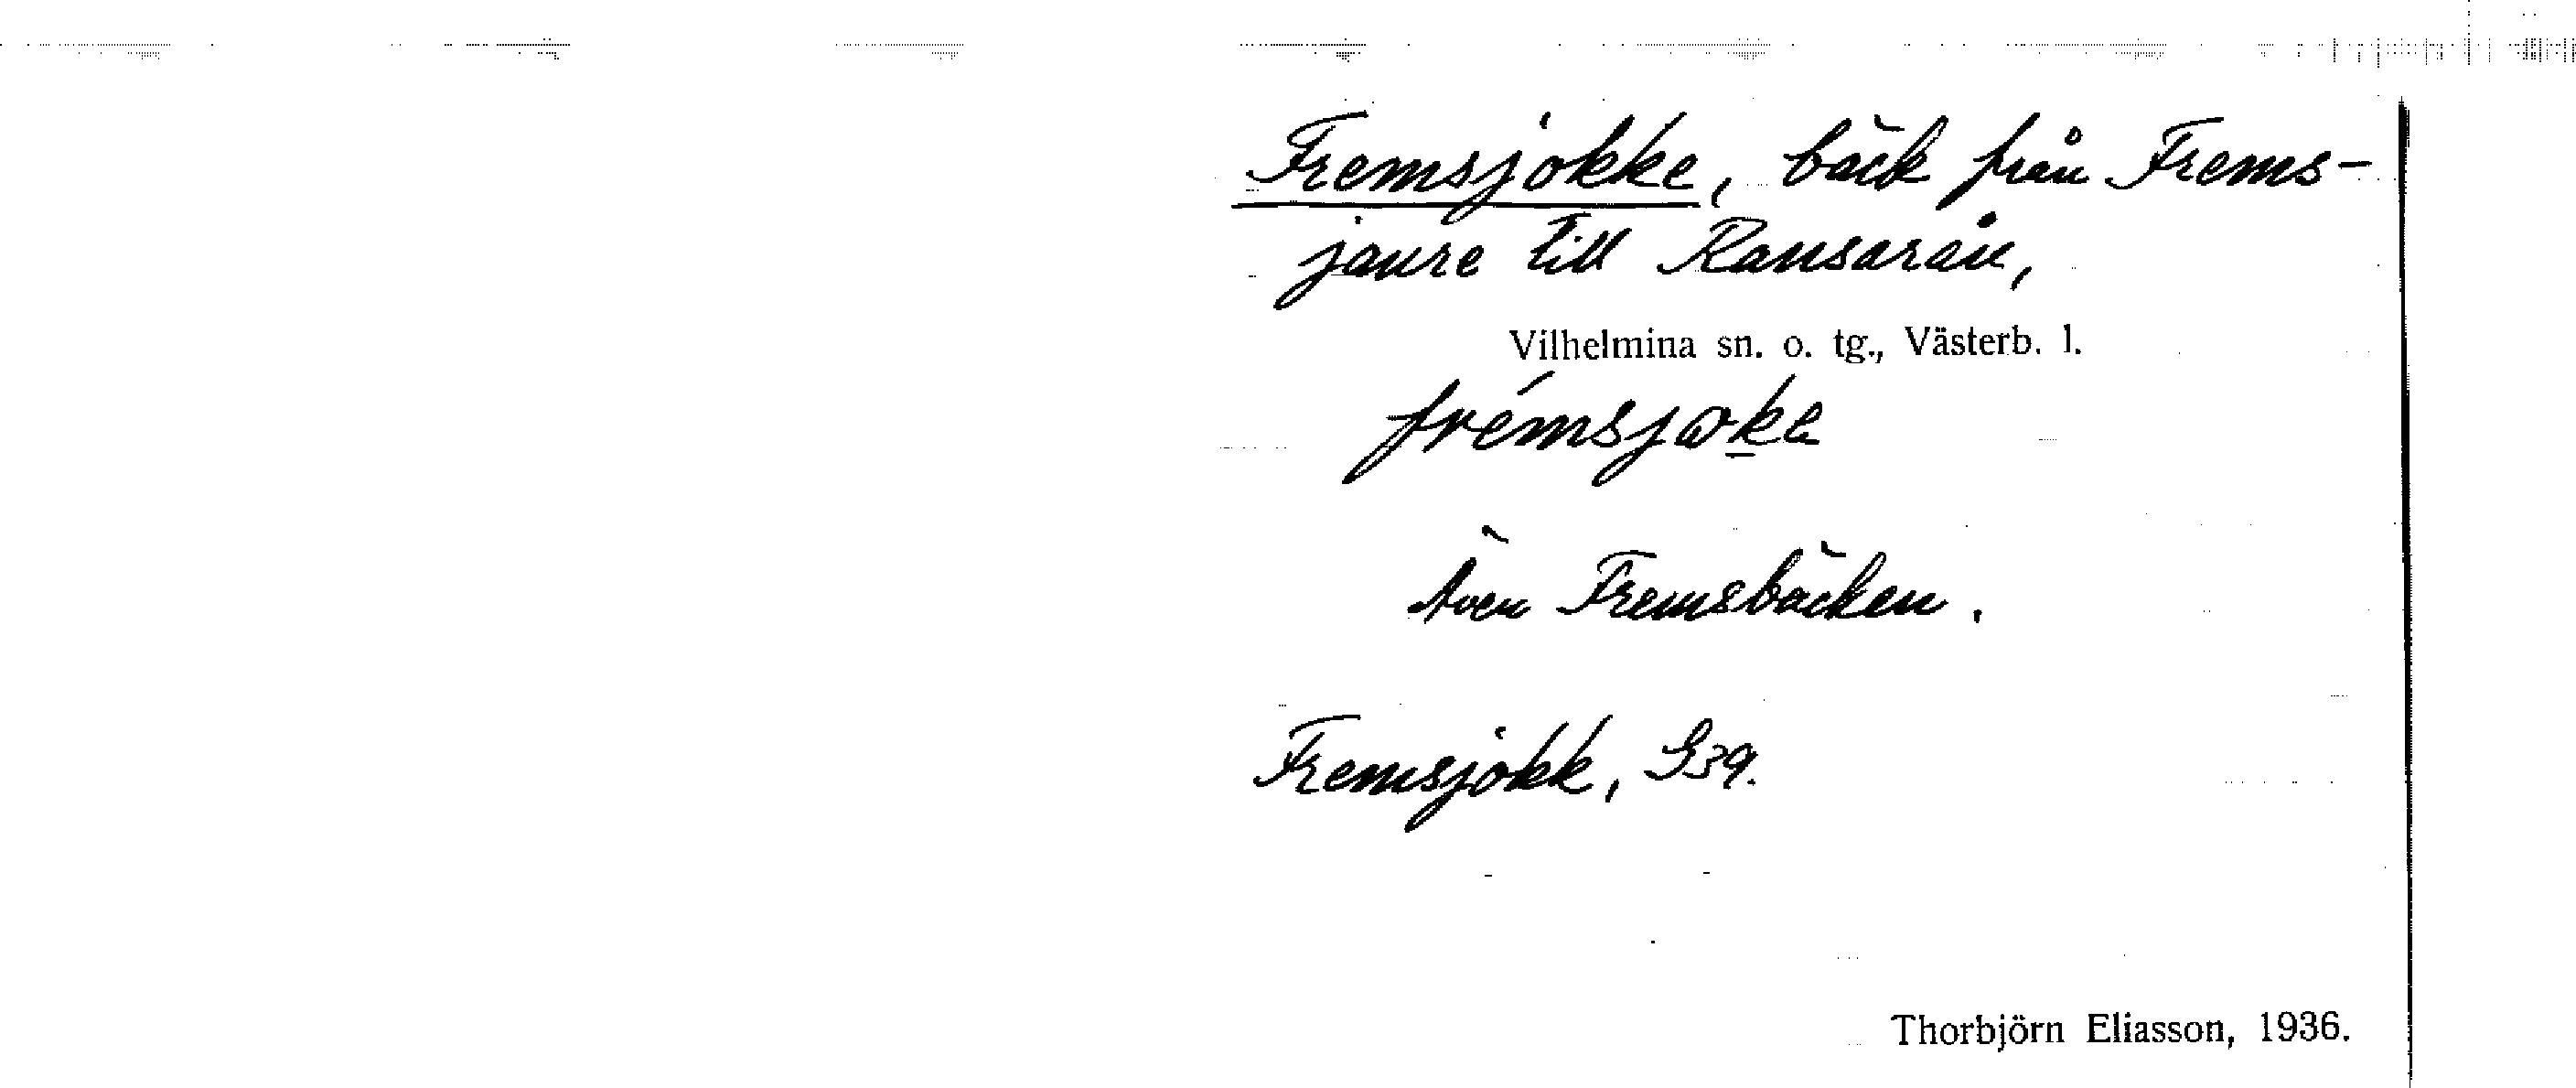 Fremsjokke, bäck från Frems-
jaure till Ransarån,
Vilhelmina sn. o. tg., Västerb. l.
Även Fremsbäcken.
Fremsjokk, G39.
Thorbjörn Eliasson, 1936.